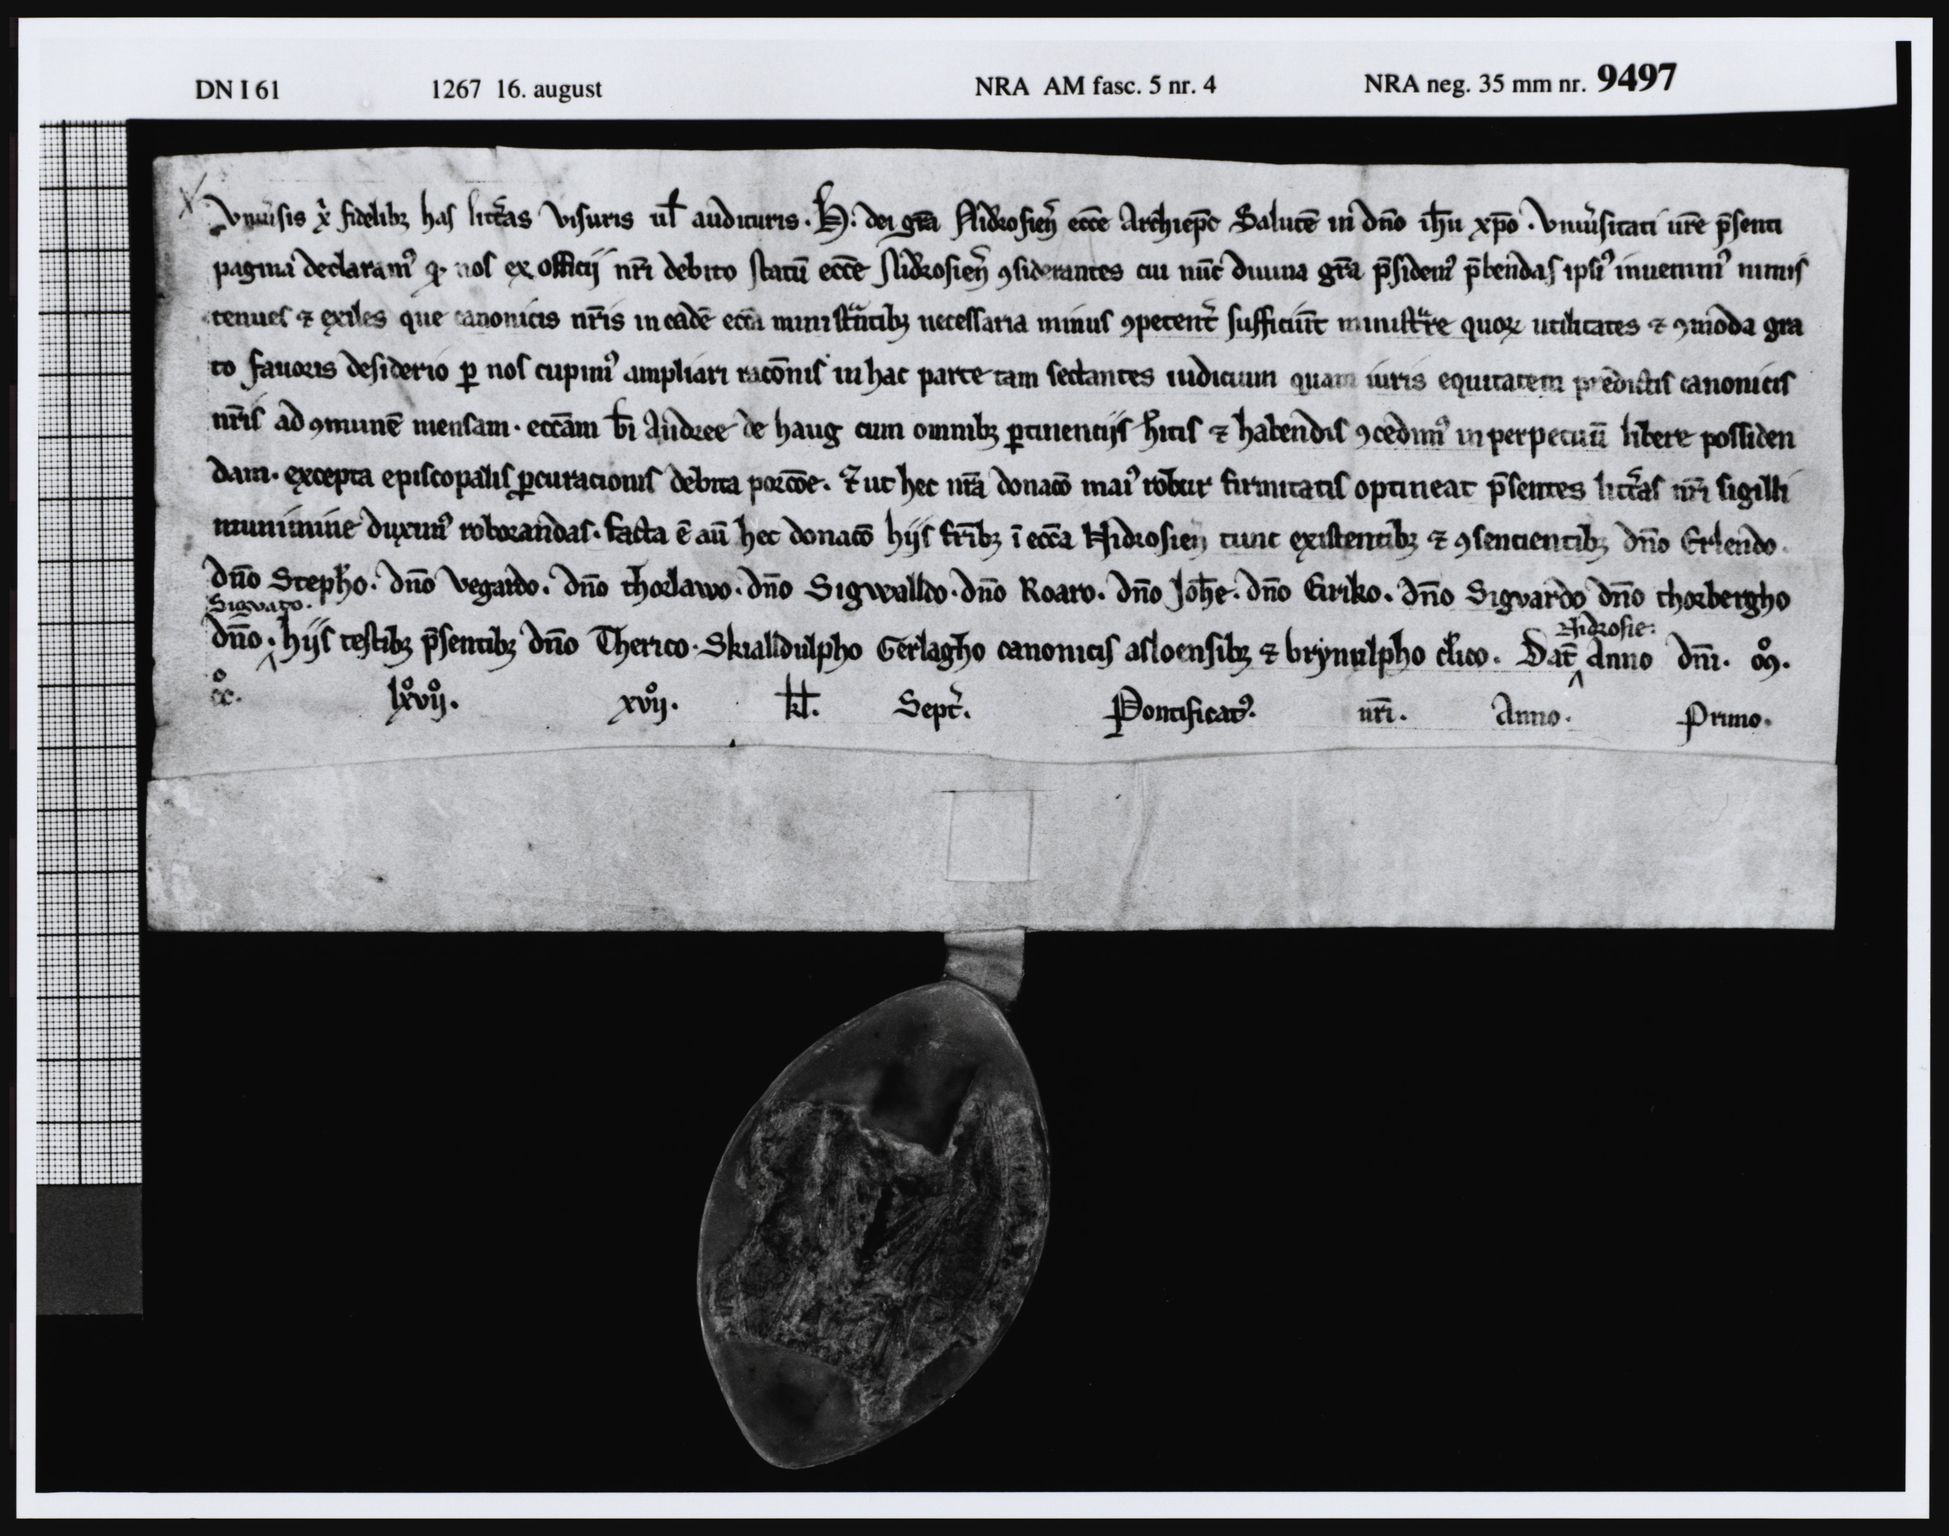 DN I 61 1267 16. august NRA AM fasc. 5 nr. 4 NRA neg. 35 mm nr. 9497
Vniu͛sis xͥ fidelibꝫ has litt͛as visuris ul̄ audituris. H. dei gr̄a Nidrosien̄ ecc̄e Archiep̄c Salutē in dn̄o ih̄u xp̄o. Vniu͛sitati ur̄e p̄senti
pagina declaramꝰ ꝙ nos ex officij nr̄i debito statū ecc̄e Nidrosien̄ ꝯsiderantes cui nūc diuina gr̄a p̄sidemꝰ p̄bendas ipsiꝰ inuenimꝰ nimis
tenues ⁊ exiles que canonicis nr̄is in eadē ecc̄a ministᷓntibꝫ necessaria minus ꝯpetent͛ sufficiūt ministᷓre quoꝝ utilitates ⁊ ꝯmoda gra
to fauoris desiderio ꝑ nos cupimꝰ ampliari racōnis in hac parte tam sectantes iudicium quam iuris equitatem predictis canonicis
nr̄is ad ꝯmunē mensam. ecc̄am b̄i Andree de haug cum omnibꝫ ꝑtinentijs h̄itis ⁊ habendis ꝯcedimꝰ in perpetuū libere possiden
dam. excepta episcopalis ꝓcuracionis debita porcōe. ⁊ ut hec nr̄a donacō maiꝰ robur firmitatis optineat p̄sentes litt͛as nr̄i sigilli
munimine duximꝰ roborandas. facta ē aū hec donacō hijs fr̄ibꝫ ī ecc̄a Nidrosien̄ tunc existentibꝫ ⁊ ꝯsencientibꝫ dn̄o Erlendo.
dn̄o Steph̄o. dn̄o Vegardo. dn̄o thorlawo. dn̄o Sigwalldo. dn̄o Roaro. dn̄o Joh̄e. dn̄o Eiriko. dn̄o Sigvardo dn̄o thorbergho
Sigvato. Nidrosie.
dn̄o. hijs testibꝫ p̄sentibꝫ dn̄o Therico. Skialldulpho Gerlagho canonicis asloensibꝫ ⁊ brynulpho cl̄ico. Dat̄ Anno dn̄i. mͦ.
ccͦ. lxͦvijͦ. xvijͦ. kl̄. Sept͛. Pontificatꝰ. nr̄i. Anno. Primo.